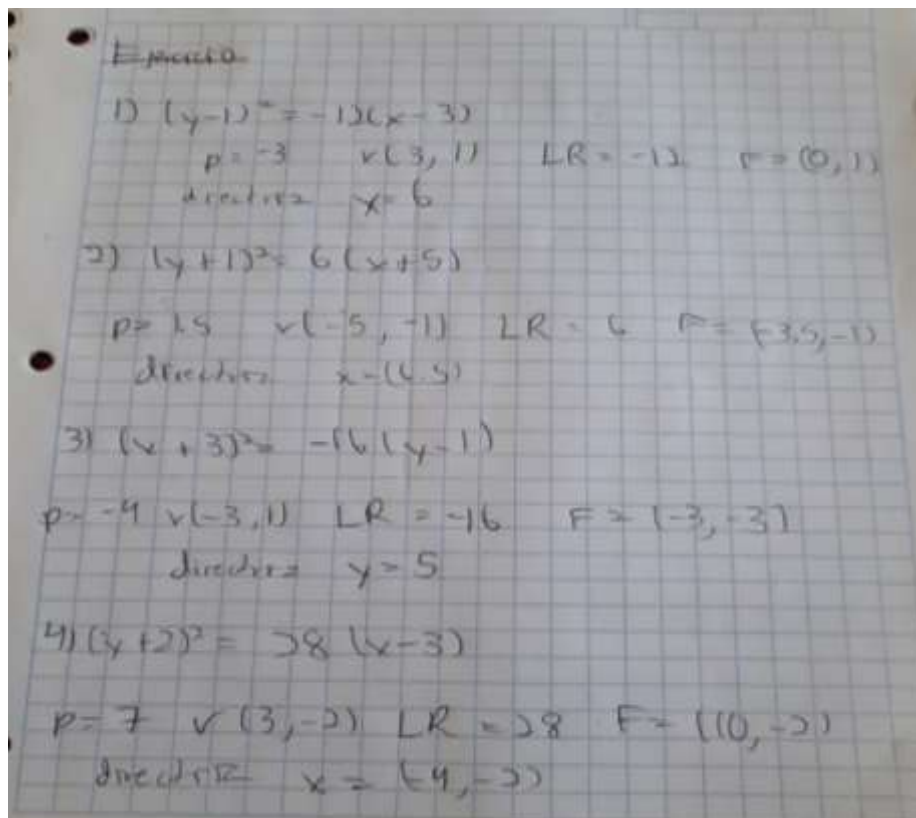 Ejercicio
1) (y-1)² = -12(x-3)
p = -3 v(3, 1) LR = -12 F = (0, 1)
directriz x = 6
2) (y+1)² = 6(x+5)
p = 1.5 v(-5, -1) LR = 6 F = (-3.5, -1)
directriz
3) (x+3)² = -16(y-1)
p = -4 v(-3, 1) LR = -16 F = (-3, -3)
directriz y = 5
4) (y+2)² = 28(x-3)
p = 7 v(3, -2) LR = 28 F = (10, -2)
directriz x = (-4, -2)